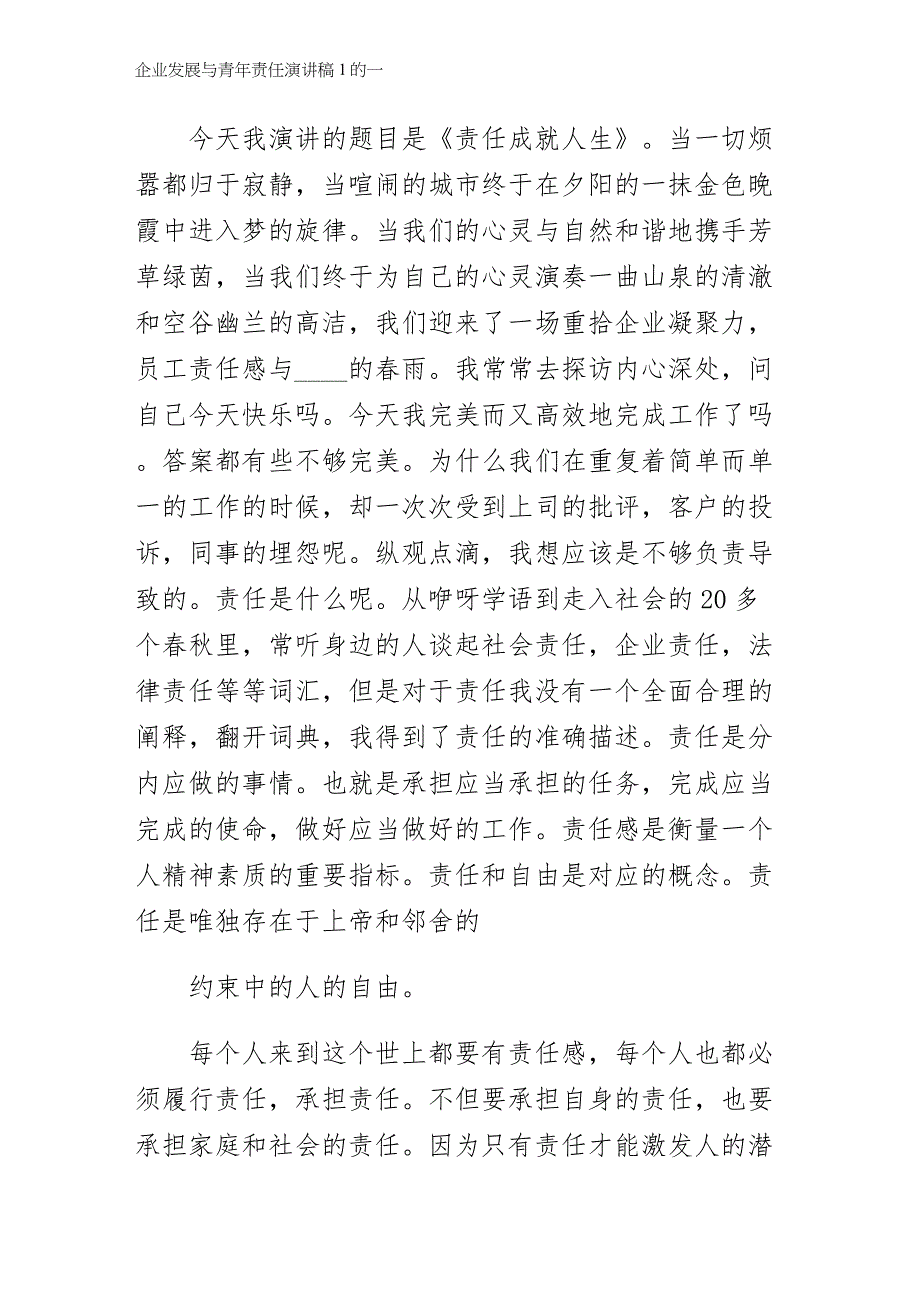 企业发展与青年责任演讲稿 1 的一
今天我演讲的题目是《责任成就人生》。当一切烦
嚣都归于寂静，当喧闹的城市终于在夕阳的一抹金色晚
霞中进入梦的旋律。当我们的心灵与自然和谐地携手芳
草绿茵，当我们终于为自己的心灵演奏一曲山泉的清澈
和空谷幽兰的高洁，我们迎来了一场重拾企业凝聚力，
员工责任感与____的春雨。我常常去探访内心深处，问
自己今天快乐吗。今天我完美而又高效地完成工作了吗
。答案都有些不够完美。为什么我们在重复着简单而单
一的工作的时候，却一次次受到上司的批评，客户的投
诉，同事的埋怨呢。纵观点滴，我想应该是不够负责导
致的。责任是什么呢。从咿呀学语到走入社会的 20 多
个春秋里，常听身边的人谈起社会责任，企业责任，法
律责任等等词汇，但是对于责任我没有一个全面合理的
阐释，翻开词典，我得到了责任的准确描述。责任是分
内应做的事情。也就是承担应当承担的任务，完成应当
完成的使命，做好应当做好的工作。责任感是衡量一个
人精神素质的重要指标。责任和自由是对应的概念。责
任是唯独存在于上帝和邻舍的
约束中的人的自由。
每个人来到这个世上都要有责任感，每个人也都必
须履行责任，承担责任。不但要承担自身的责任，也要
承担家庭和社会的责任。因为只有责任才能激发人的潜